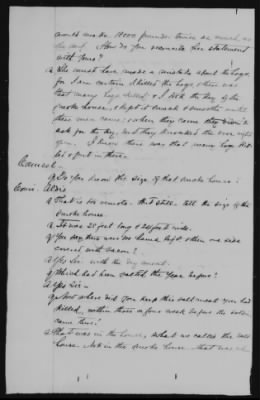 would make 18000 pounds twice as much as
she said. How do you reconcile her statement
with yours?
a. She must have made a mistake about the hogs
for I am certain I killed the hogs, there was
that many hogs killed & I took the key of the
smoke house, & kept it smoked & smothered until
these men came; & when they came they
ask for the key, and they knocked the door right
open. I know there was that many hogs
put in there.
Council
q. Do you know the size of that smoke house?
Com. Aldis
q. That is too remote. But still tell the size of the
smoke house.
a. It was 25 feet long & 20 feet wide.
q. You say there were no hams left other one side
covered with bacon?
a. Yes Sir. with the dry meat.
q. Which had been salted the year before?
a. Yes Sir.
q. And where did you keep this salt meat you had
killed, within three or four weeks before the soldiers
came there?
a. That was in the house, what we called the salt
house. Not in the smoke house. that was